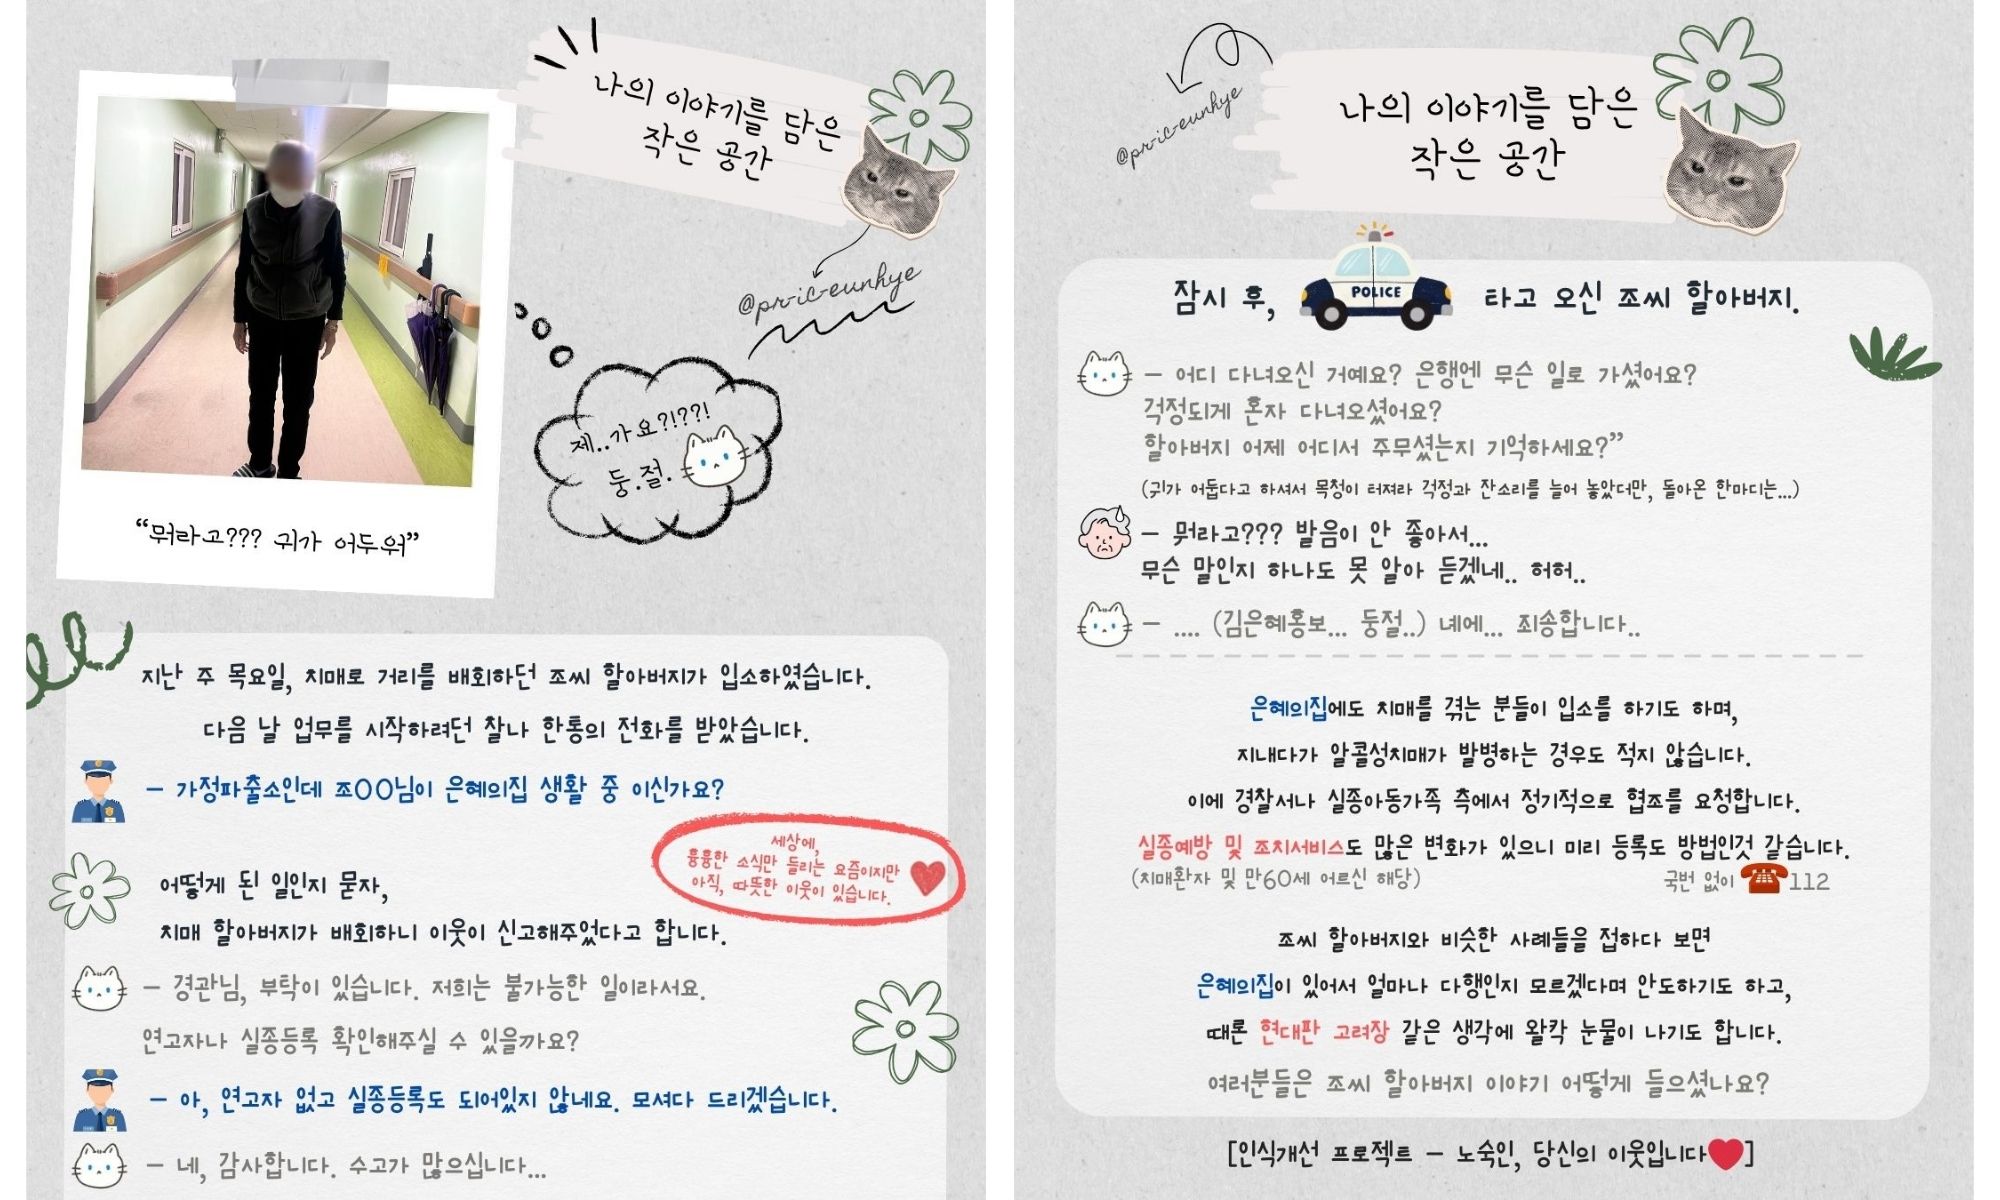 나의 이야기를 담은
작은 공간
@pr-ic-eunhye
제..가요?!??!
둥.절.
“뭐라고??? 귀가 어두워”
지난 주 목요일, 치매로 거리를 배회하던 조씨 할아버지가 입소하였습니다.
다음 날 업무를 시작하려던 찰나 한통의 전화를 받았습니다.
– 가정파출소인데 조OO님이 은혜의집 생활 중 이신가요?
세상에,
흉흉한 소식만 들리는 요즘이지만
아직, 따뜻한 이웃이 있습니다.
어떻게 된 일인지 묻자,
치매 할아버지가 배회하니 이웃이 신고해주었다고 합니다.
– 경관님, 부탁이 있습니다. 저희는 불가능한 일이라서요.
연고자나 실종등록 확인해주실 수 있을까요?
– 아, 연고자 없고 실종등록도 되어있지 않네요. 모셔다 드리겠습니다.
– 네, 감사합니다. 수고가 많으십니다...
@pr-ic-eunhye
나의 이야기를 담은
작은 공간
잠시 후, POLICE 타고 오신 조씨 할아버지.
– 어디 다녀오신 거예요? 은행엔 무슨 일로 가셨어요?
걱정되게 혼자 다녀오셨어요?
할아버지 어제 어디서 주무셨는지 기억하세요?”
(귀가 어둡다고 하셔서 목청이 터져라 걱정과 잔소리를 늘어 놓았더만, 돌아온 한마디는...)
– 뭐라고??? 발음이 안 좋아서...
무슨 말인지 하나도 못 알아 듣겠네.. 허허..
– .... (김은혜홍보... 둥절..) 네에... 죄송합니다..
은혜의집에도 치매를 겪는 분들이 입소를 하기도 하며,
지내다가 알콜성치매가 발병하는 경우도 적지 않습니다.
이에 경찰서나 실종아동가족 측에서 정기적으로 협조를 요청합니다.
실종예방 및 조치서비스도 많은 변화가 있으니 미리 등록도 방법인것 같습니다.
(치매환자 및 만60세 어르신 해당) 국번 없이 112
조씨 할아버지와 비슷한 사례들을 접하다 보면
은혜의집이 있어서 얼마나 다행인지 모르겠다며 안도하기도 하고,
때론 현대판 고려장 같은 생각에 왈칵 눈물이 나기도 합니다.
여러분들은 조씨 할아버지 이야기 어떻게 들으셨나요?
[인식개선 프로젝트 – 노숙인, 당신의 이웃입니다❤]